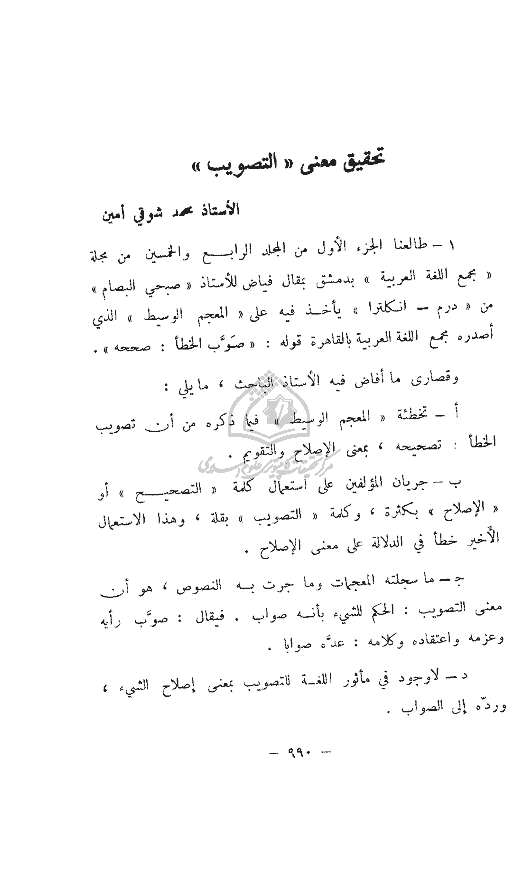 تحقيق معنى « التصويب »
الأستاذ محمد شوقي أمين
١ – طالعنا الجزء الأول من المجلد الرابع والخمسين من مجلة
« مجمع اللغة العربية » بدمشق بمقال فياض للأستاذ « صبحي البصام »
من « درم – انكلترا » يأخذ فيه على « المعجم الوسيط » الذي
أصدره مجمع اللغة العربية بالقاهرة قوله : « صَوَّب الخطأ : صححه » .
وقصارى ما أفاض فيه الأستاذ الباحث ، ما يلي :
أ – تخطئة « المعجم الوسيط » فيما ذكره من أن تصويب
الخطأ : تصحيحه ، بمعنى الإصلاح والتقويم .
ب – جريان المؤلفين على استعمال كلمة « التصحيح » أو
« الإصلاح » بكثرة ، وكلمة « التصويب » بقلة ، وهذا الاستعمال
الأخير خطأ في الدلالة على معنى الإصلاح .
جـ – ما سجلته المعجمات وما جرت به النصوص ، هو أن
معنى التصويب : الحكم للشيء بأنه صواب . فيقال : صوَّب رأيه
وعزمه واعتقاده وكلامه : عدَّه صوابا .
د – لاوجود في مأثور اللغة للتصويب بمعنى إصلاح الشيء ،
وردّه إلى الصواب .
– ٩٩٠ –